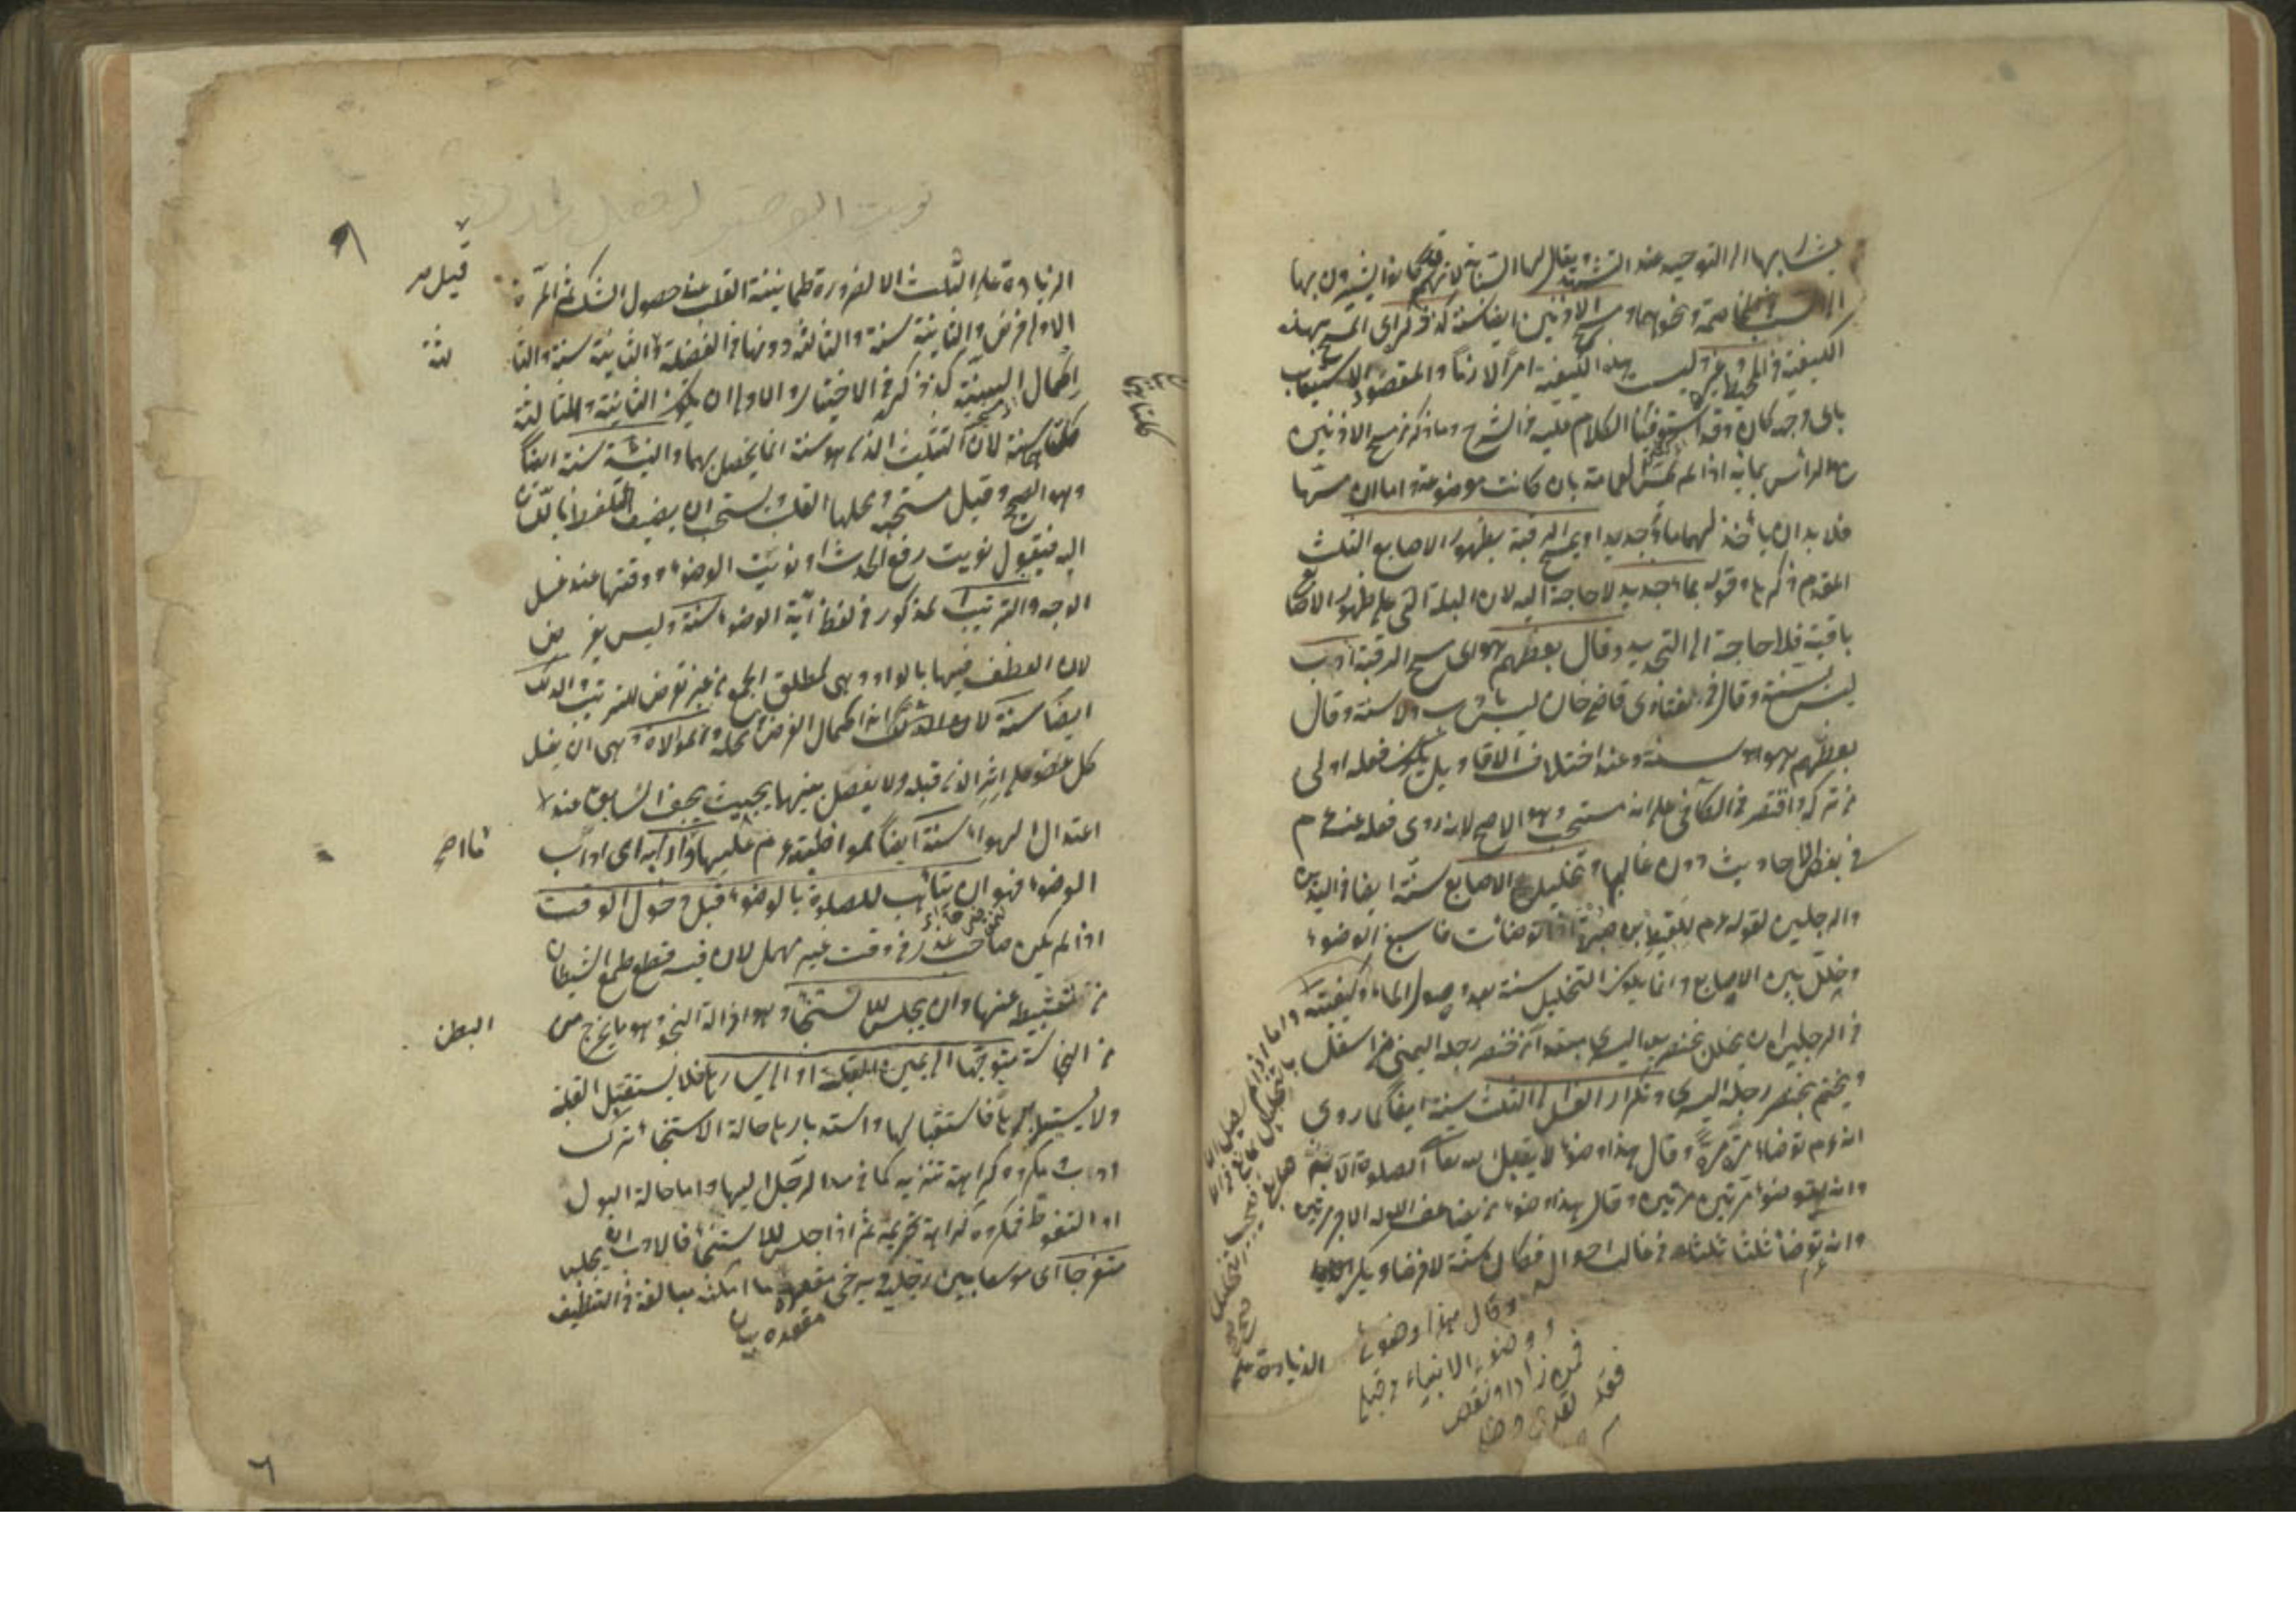 يشار بها الى التوحيد عند التشهد ويقال لها السبابة لانهم كانوا يشيرون بها
الى السب والمخاصمة ونحوهما ومسح الاذنين ايضا سنة كذا ذكر اى المسح بهذه
الكيفية في المحيط وغيره وليست هذه الكيفية امرا لازما والمقصود الاستيعاب
باى وجه كان وقد استوفينا الكلام عليه في الشرح وما ذكر من مسح الاذنين
الرأس بمائه اذا لم تمس العمامة بان كانت موضوعة واما ان مسها
فلا بد ان يأخذ لهما ماء جديدا ويمسح الرقبة بظهور الاصابع الثلث
المقدم ذكرها وقوله بماء جديد لا حاجة اليه لان البلة التي على ظهور الاصابع
باقية فلا حاجة الى التجديد وقال بعضهم هو اى مسح الرقبة ادب
ليس بسنة وقال في فتاوى قاضيخان ليس بادب ولا سنة وقال
بعضهم هو سنة وعند اختلاف الاقاويل يكون فعله اولى
من تركه واقتصر في الكافى على انه مستحب وهو الاصح لانه روى فعله عنه عم
في بعض الاحاديث دون غالبها وتخليل الاصابع سنة ايضا في اليدين
والرجلين لقوله عم للقيط بن صبرة اذا توضأت فاسبغ الوضوء
وخلل بين الاصابع وانما يكون التخليل سنة بعد وصول الماء وكيفيته
في الرجلين ان يخلل بخنصر يده اليسرى مبتدا من خنصر رجله اليمنى من اسفل
ويختم بخنصر رجله اليسرى وتكرار الغسل الى الثلث سنة ايضا لما روى
انه عم توضأ مرة مرة وقال هذا وضوء لا يقبل الله تعالى الصلوة الا به
وانه توضأ مرتين مرتين وقال هذا وضوء من يضاعف الله له الاجر مرتين
وانه توضأ ثلثا ثلثا في غالب احواله فكان سنة لا فرضا ويكره
وقال هذا وضوئى
ووضوء الانبياء من قبلى
فمن زاد او نقص
فقد تعدى وظلم
الزيادة على
الزيادة على الثلث الا لضرورة طمانينة القلب عند حصول الشك ثم المرة
قيل
الاولى فرض والثانية سنة والثالثة دونها في الفضيلة والثانية سنة والثا
لثة
اكمال السنة كذا ذكره في الاختيار والاولى ان يكون الثانية والثالثة
كلتاهما سنة لان التثليث الذى هو سنة انما يحصل بهما والنية سنة ايضا
وهو الصحيح وقيل مستحبة ومحلها القلب ويستحب ان يضيف التلفظ باللسان
اليه فيقول نويت رفع الحدث او نويت الوضوء ووقتها عند غسل
الوجه والترتيب المذكور في لفظ آية الوضوء سنة وليس بفرض
لان العطف فيها بالواو وهي لمطلق الجمع من غير تعرض للترتيب والدلك
ايضا سنة لان الدلك انه اكمال الفرض في محله والموالاة وهي ان يغسل
كل عضو على اثر الذى قبله ولا يفصل بينهما بحيث يجف السابق عند
اعتدال الهواء سنة ايضا لمواظبته عم عليها وآدابه اى اداب
الوضوء فهو ان يتأهب للصلوة بالوضوء قبل دخول الوقت
اذا لم يكن صاحب عذر في وقت غير مهمل لان فيه قطع طمع الشيطان
من تثبيطه عنها وان يجلس للاستنجاء وهو ازالة النجو وهو ما يخرج من
البطن
من النجاسة متوجها الى يمين القبلة او الى يسارها فلا يستقبل القبلة
ولا يستدبرها فاستقبالها واستدبارها حالة الاستنجاء ترك
ادب ومكروه كراهة تنزيه كما في مد الرجل اليها واما حالة البول
او التغوط فمكروه كراهة تحريم ثم اذا جلس للاستنجاء فالادب ان يجلس
متفرجا اى موسعا بين رجليه ويرخى مقعده ما امكنه مبالغة في التنظيف
مقعده